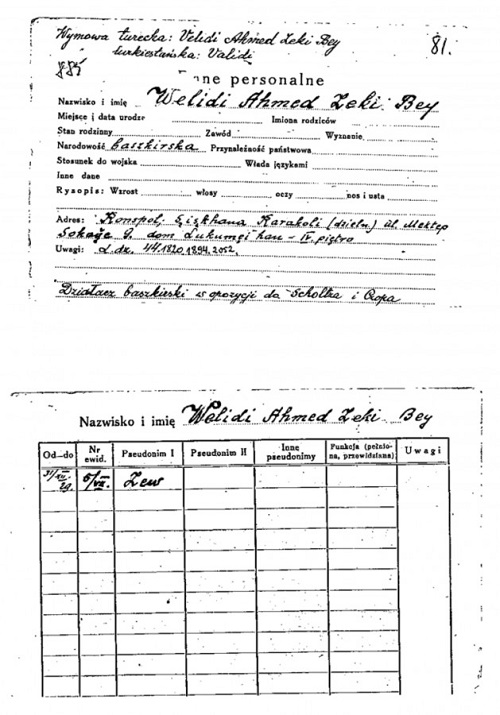 Wymowa turecka: Velidi Ahmed Zeki Bey
turkiestańska: Validi
81.
885
nne personalne
Nazwisko i imię Welidi Ahmed Zeki Bey
Miejsce i data urodze Imiona rodziców
Stan rodzinny Zawód Wyznanie
Narodowość baszkirska Przynależność państwowa
Stosunek do wojska Włada językami
Inne dane
Rysopis: Wzrost włosy oczy nos i usta
Adres: Konspol, Karakoli (dzieln.) ul. Mektep
Sokağe 9. dom han - IV. piętro
Uwagi: L.dz. 44.1820, 1894, 2052.
Działacz baszkirski w opozycji do i
Nazwisko i imię Welidi Ahmed Zeki Bey
Od—do Nr ewid. Pseudonim I Pseudonim II Inne pseudonimy Funkcja (pełniona, przewidziana) Uwagi
31/XII. 29. 5/VII. Zew